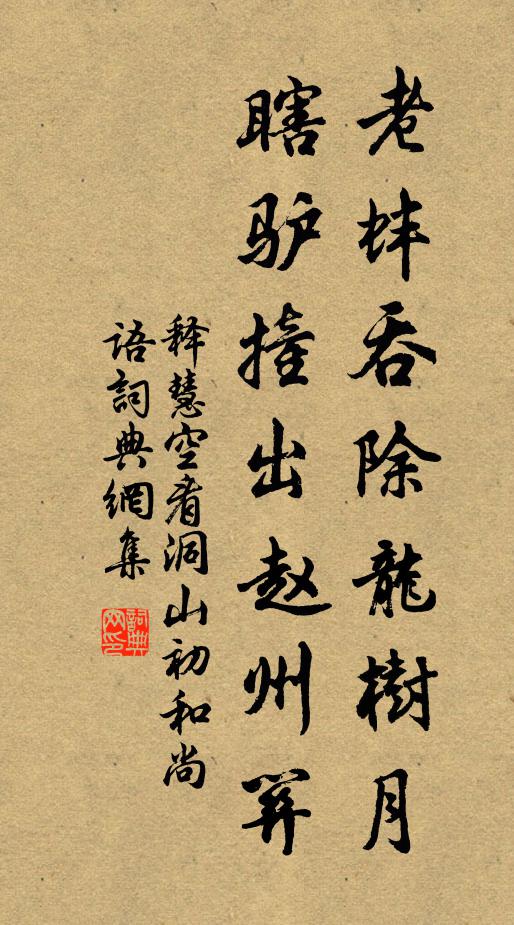 老蚌吞除龍樹月
瞎驴撞出赵州關
释慧空看洞山初和尚
語詞典網集
詞典
网印